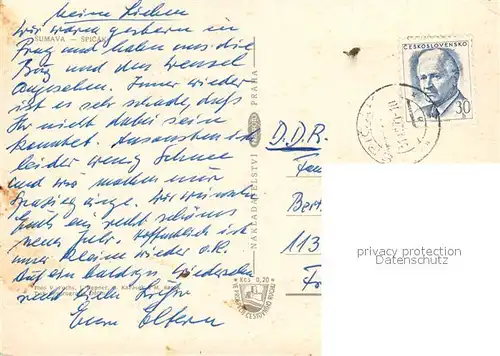 Meine Lieben
ŠUMAVA — ŠPIČÁK
Wir waren gestern in
Prag und haben uns die
Burg und den Wenzel
angesehen. Immer wieder
ist es sehr schade, daß
Ihr nicht dabei sein
konntet. Ansonsten ist
leider wenig Schnee
und wir machen nur
Spaziergänge. Wir wünschen
Euch ein recht schönes
neues Jahr. Hoffentlich ist
unser Kleine wieder o.k.
Auf ein baldiges Wiedersehen
recht liebe Grüße
Eure Eltern
NAKLADATELSTVÍ PRAHA
Kčs 0,20
ČESKOSLOVENSKO
30
D.D.R.
Fam
Ber
113
privacy protection
Datenschutz